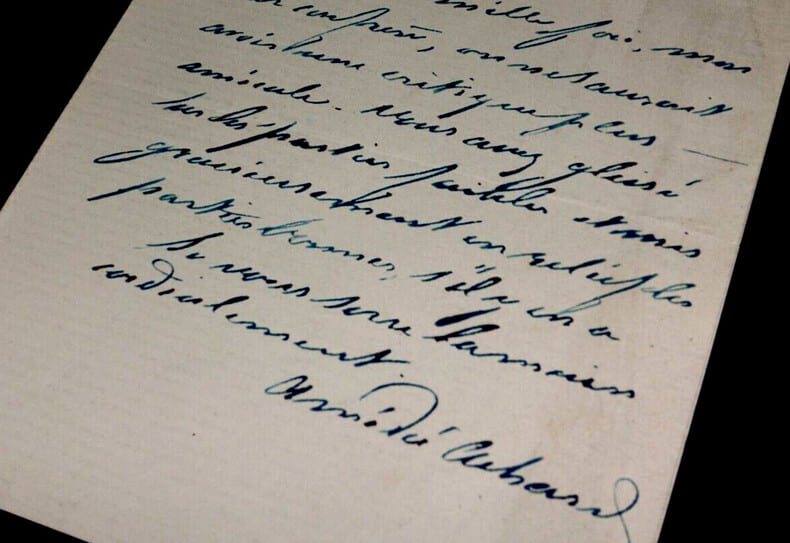 mille fois, mon
confrère, on ne saurait
avoir une critique plus —
amicale. Vous avez glissé
sur les parties faibles et mis
gracieusement en relief les
parties bonnes, s'il y en a
Je vous serre la main
cordialement.
Amédée Achard